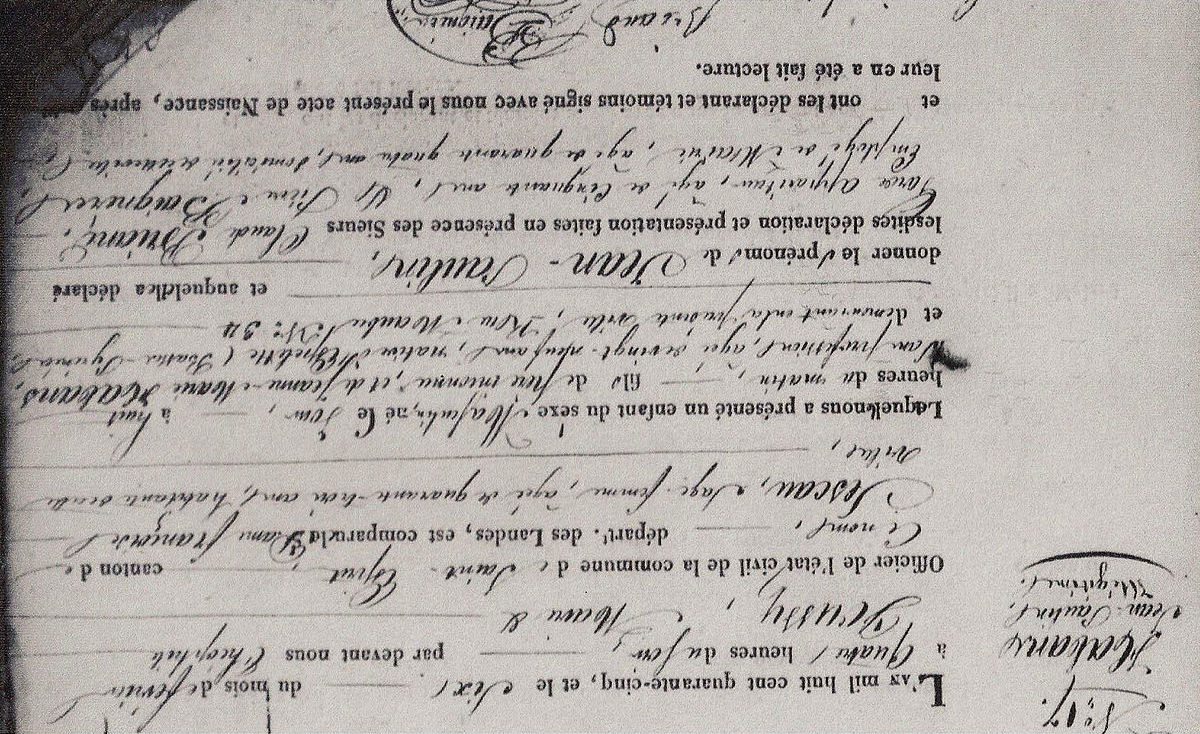 N.° 17.
Habans
Jean-Paulin,
Illégitime.
L'AN mil huit cent quarante-cinq, et le Six, du mois de février
à quatre heures du soir, par devant nous Théophile
Maire &
Officier de l'état civil de la commune de Saint-Esprit, canton de
ce nom, départ.t des Landes, est comparu la Dame françoise
Lescau, Sage-femme, âgée de quarante-trois ans, habitante de cette
ville,
Laquelle nous a présenté un enfant du sexe Masculin, né ce jour, à huit
heures du matin, fils de père inconnu, et de Jeanne-Marie Habans,
sans profession, âgée de vingt-neuf ans, native d'Espelette (Basses-Pyrénées)
et demeurant en la présente ville, Rue Maubec N.° 34
et auquel elle a déclaré
donner les prénoms de Jean-Paulin,
lesdites déclaration et présentation faites en présence des Sieurs Claude Briand,
Garde appariteur, âgé de cinquante ans, et
Employé de Mairie, âgé de quarante quatre ans, domiciliés de cette ville
et ont les déclarant et témoins signé avec nous le présent acte de Naissance, après
leur en a été fait lecture.
Briand